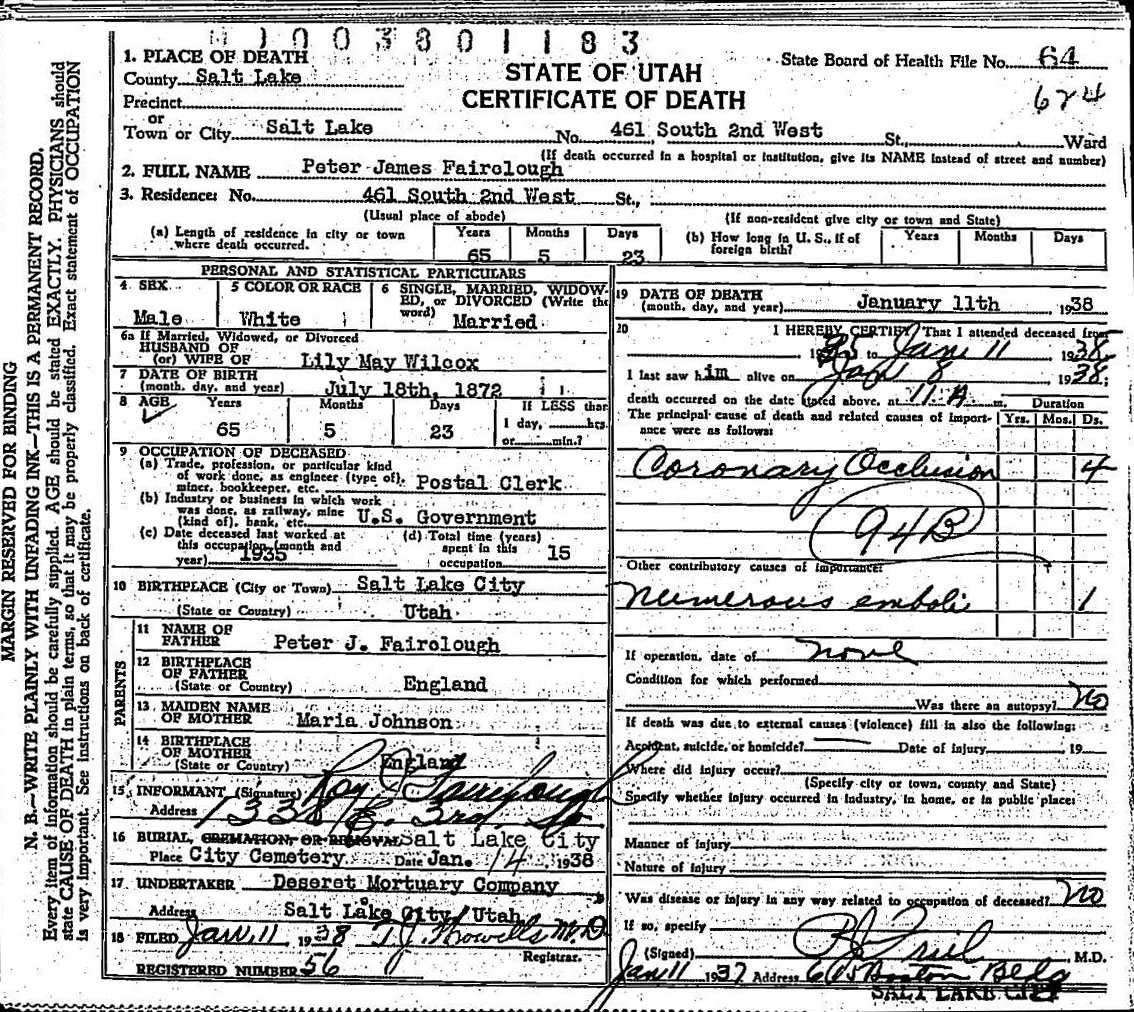 1003801183
1. PLACE OF DEATH
County Salt Lake
STATE OF UTAH
CERTIFICATE OF DEATH
State Board of Health File No. 64
624
Precinct
or
Town or City Salt Lake No. 461 South 2nd West St., Ward
(If death occurred in a hospital or institution, give its NAME instead of street and number)
2. FULL NAME Peter James Fairclough
3. Residence: No. 461 South 2nd West St.,
(Usual place of abode) (If non-resident give city or town and State)
(a) Length of residence in city or town where death occurred. Years 65 Months 5 Days 23
(b) How long in U. S., if of foreign birth? Years Months Days
PERSONAL AND STATISTICAL PARTICULARS
4 SEX Male
5 COLOR OR RACE White
6 SINGLE, MARRIED, WIDOWED, or DIVORCED (Write the word) Married
6a If Married, Widowed, or Divorced
HUSBAND OF
(or) WIFE OF Lily May Wilcox
7 DATE OF BIRTH
(month, day, and year) July 18th, 1872
8 AGE Years 65 Months 5 Days 23
If LESS than
1 day, hrs.
or min.?
9 OCCUPATION OF DECEASED
(a) Trade, profession, or particular kind
of work done, as engineer (type of),
miner, bookkeeper, etc. Postal Clerk
(b) Industry or business in which work
was done, as railway, mine
(kind of), bank, etc. U.S. Government
(c) Date deceased last worked at
this occupation (month and
year) 1935
(d) Total time (years)
spent in this
occupation 15
10 BIRTHPLACE (City or Town) Salt Lake City
(State or Country) Utah
PARENTS
11 NAME OF
FATHER Peter J. Fairclough
12 BIRTHPLACE
OF FATHER
(State or Country) England
13 MAIDEN NAME
OF MOTHER Maria Johnson
14 BIRTHPLACE
OF MOTHER
(State or Country) England
15 INFORMANT (Signature) Roy J Fairclough
Address 1338 E. 3rd So
16 BURIAL, CREMATION OR REMOVAL Salt Lake City
Place City Cemetery Date Jan. 14, 1938
17 UNDERTAKER Deseret Mortuary Company
Address Salt Lake City, Utah
18 FILED Jan. 11 1938 T. J. Howells M.D.
Registrar.
REGISTERED NUMBER 56
19 DATE OF DEATH
(month, day, and year) January 11th, 1938
20 I HEREBY CERTIFY, That I attended deceased from
1935 to Jan 11 1938
I last saw him alive on Jan 8 1938;
death occurred on the date stated above, at 11 A m. Duration
The principal cause of death and related causes of importance were as follows: Yrs. Mos. Ds.
Coronary Occlusion 4
94B
Other contributory causes of importance:
Numerous emboli 1
If operation, date of none
Condition for which performed
Was there an autopsy? No
If death was due to external causes (violence) fill in also the following:
Accident, suicide, or homicide? Date of injury 19
Where did injury occur?
(Specify city or town, county and State)
Specify whether injury occurred in industry, in home, or in public place:
Manner of injury
Nature of injury
Was disease or injury in any way related to occupation of deceased? No
If so, specify
(Signed) M.D.
Jan 11 1937 Address Boston Bldg
SALT LAKE CITY
MARGIN RESERVED FOR BINDING
N. B.—WRITE PLAINLY WITH UNFADING INK—THIS IS A PERMANENT RECORD.
Every item of information should be carefully supplied. AGE should be stated EXACTLY. PHYSICIANS should
state CAUSE OF DEATH in plain terms, so that it may be properly classified. Exact statement of OCCUPATION
is very important. See instructions on back of certificate.